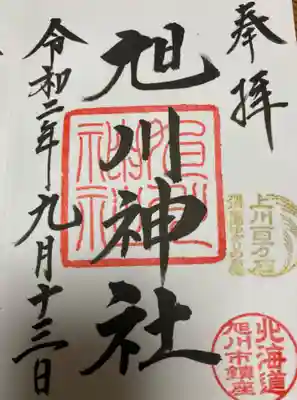 奉拝
旭川神社
令和二年九月十三日
旭川神社
上川百万石
北海道
旭川市鎮座